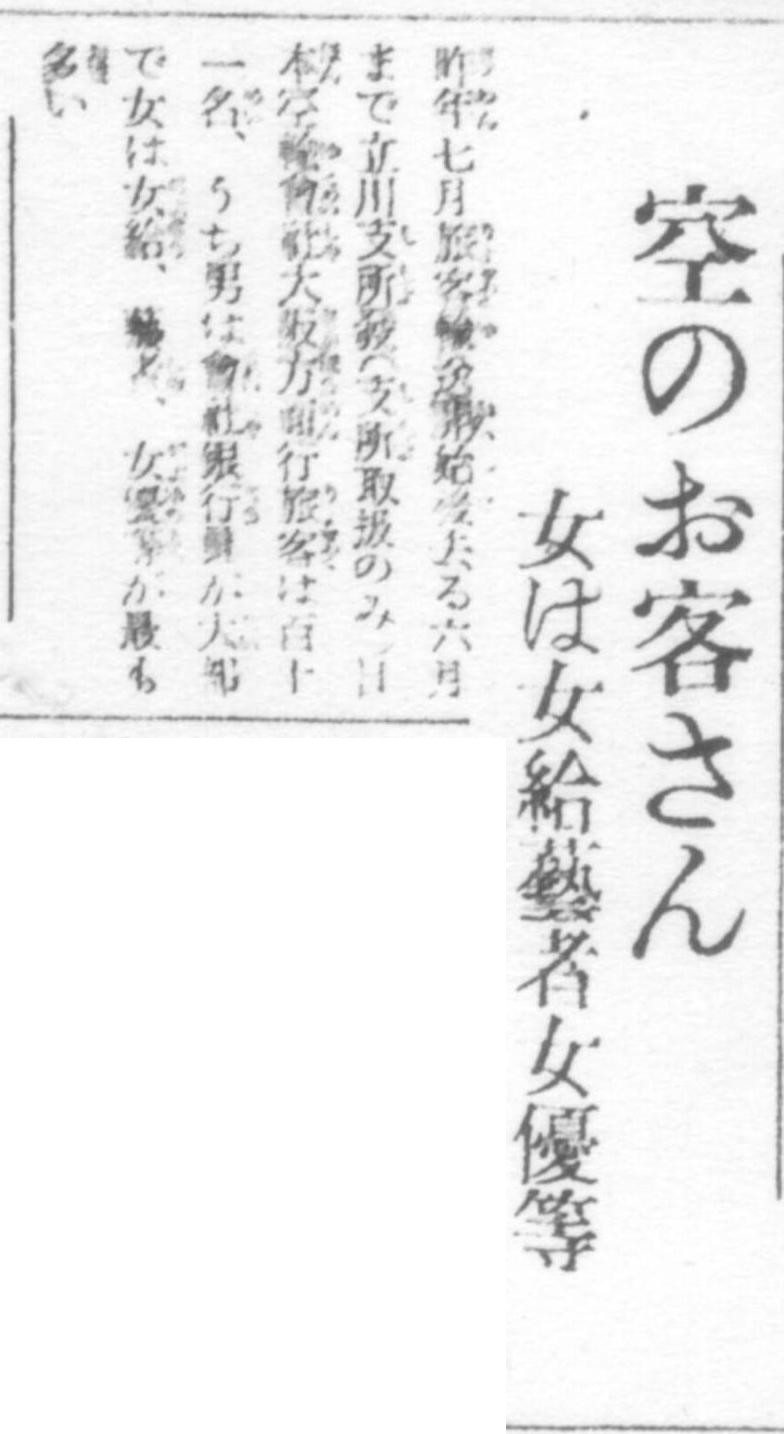 空のお客さん
女は女給藝者女優等
昨年七月旅客輸送開始後去る六月
まで立川支所扱(支所取扱のみ)日
本空輸會社大阪方面行旅客は百十
一名、うち男は會社銀行員が大部
で女は女給、藝者、女優等が最も
多い